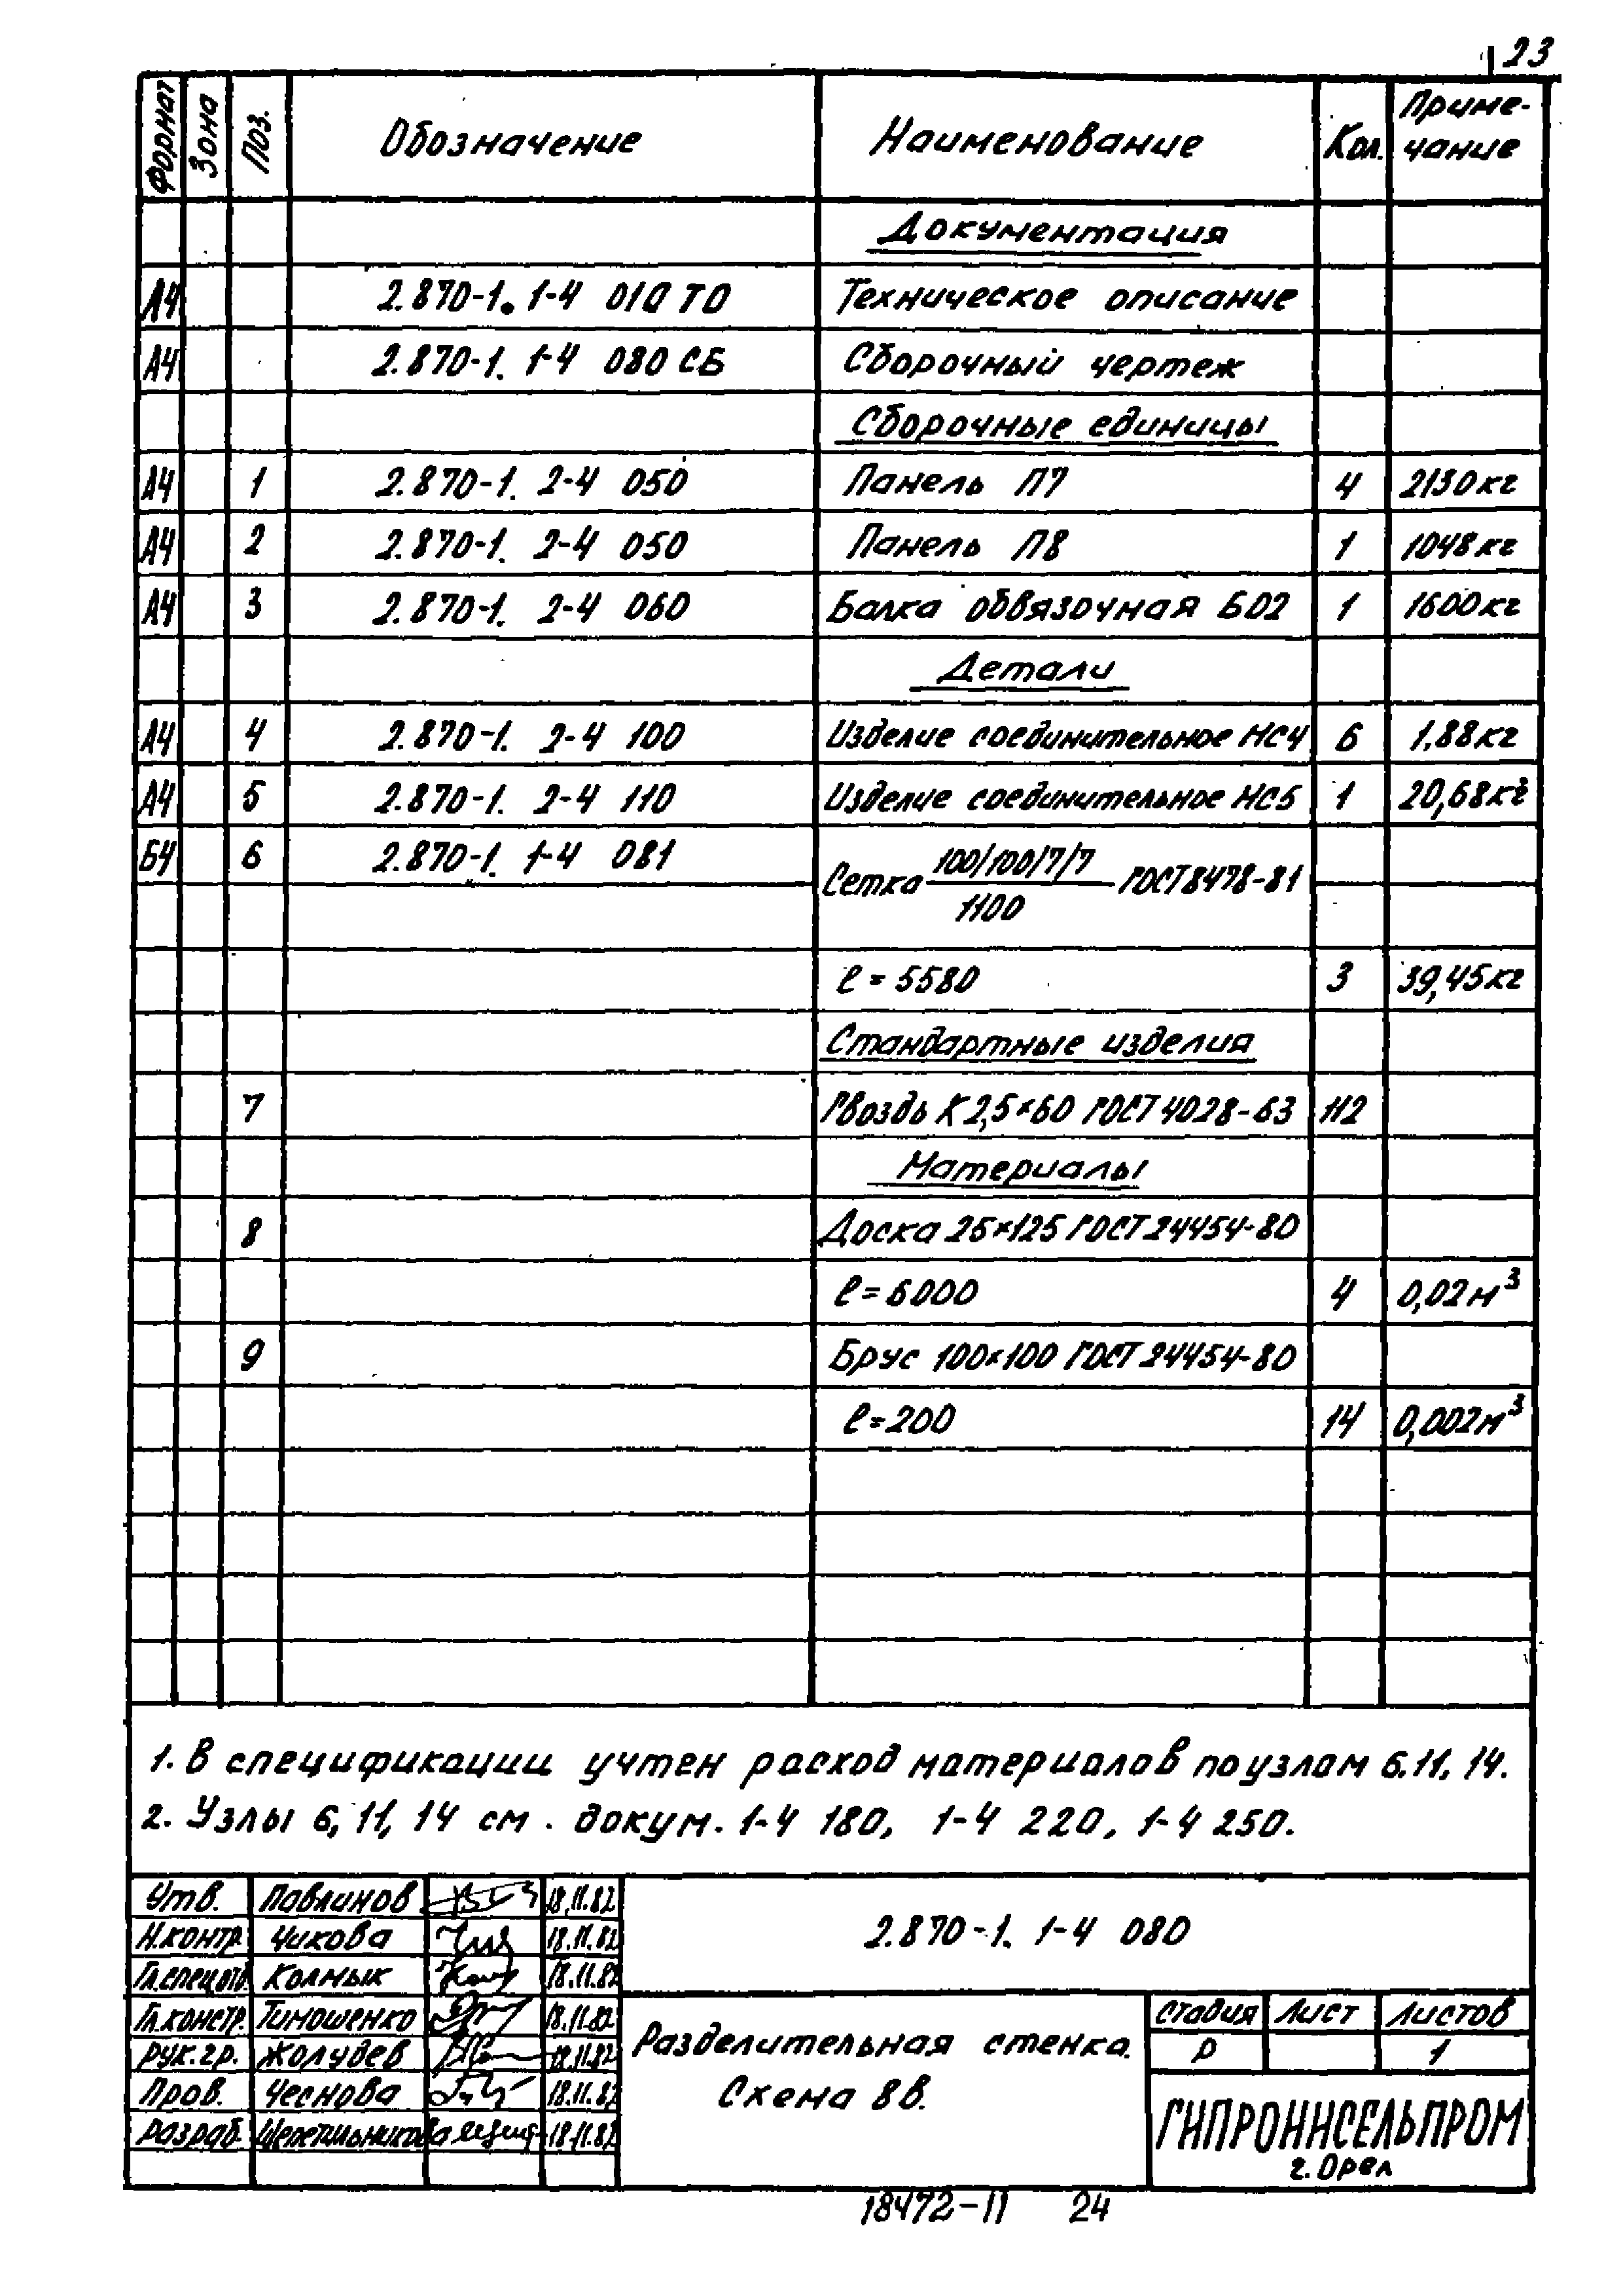 23
Формат Зона Поз. Обозначение Наименование Кол. Приме-
чание
Документация
А4 2.870-1. 1-4 010 ТО Техническое описание
А4 2.870-1. 1-4 080 СБ Сборочный чертеж
Сборочные единицы
А4 1 2.870-1. 2-4 050 Панель П7 4 2130кг
А4 2 2.870-1. 2-4 050 Панель П8 1 1048кг
А4 3 2.870-1. 2-4 060 Балка обвязочная БО2 1 1600кг
Детали
А4 4 2.870-1. 2-4 100 Изделие соединительное МС4 6 1,88кг
А4 5 2.870-1. 2-4 110 Изделие соединительное МС5 1 20,68кг
Б4 6 2.870-1. 1-4 081 Сетка 100/100/7/7 ГОСТ 8478-81
1100
ℓ = 5580 3 39,45кг
Стандартные изделия
7 Гвоздь К 2,5×60 ГОСТ 4028-63 112
Материалы
8 Доска 25×125 ГОСТ 24454-80
ℓ = 6000 4 0,02м³
9 Брус 100×100 ГОСТ 24454-80
ℓ = 200 14 0,002м³
1. В спецификации учтен расход материалов по узлам 6.11, 14.
2. Узлы 6, 11, 14 см. докум. 1-4 180, 1-4 220, 1-4 250.
Утв. Павлинов 18.11.82
Н.контр. Чикова 18.11.82
Гл.спец.отд. Колмык 18.11.82
Гл.констр. Тимошенко 18.11.82
Рук.гр. Жолудев 18.11.82
Пров. Чеснова 18.11.82
Разраб. 18.11.82
2.870-1. 1-4 080
Разделительная стенка.
Схема 8в.
Стадия Лист Листов
Р 1
ГИПРОНИСЕЛЬПРОМ
г. Орел
18472-11 24